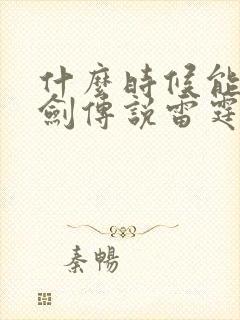 什麼時候能
劍傳說雷霆
秦暢